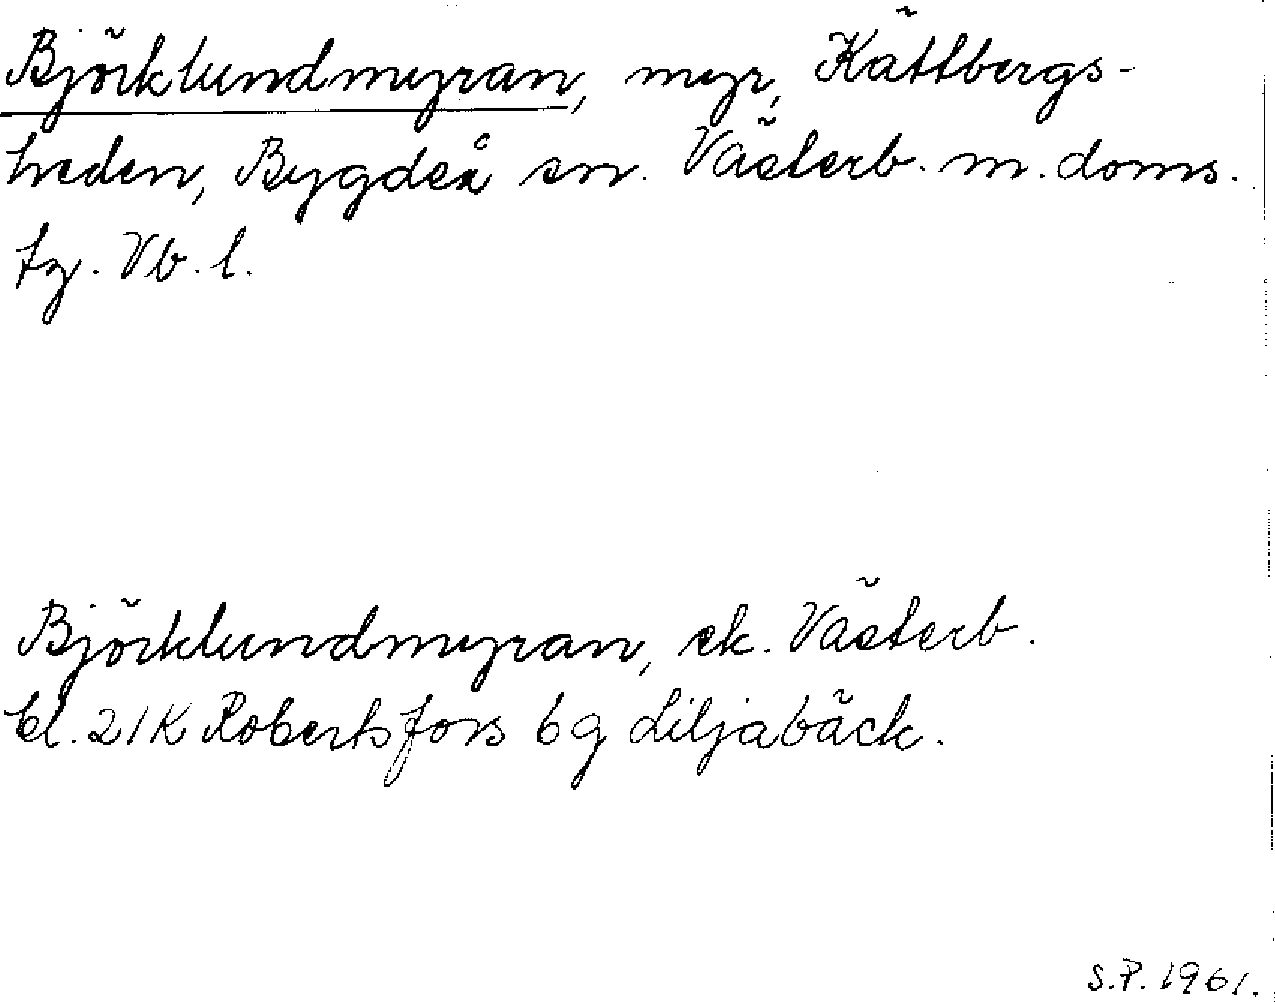 Björklundmyran, myr, Kättbergs-
heden, Bygdeå sn. Västerb. m. doms.
tg. Vb. l.
Björklundmyran, ek. Västerb.
bl. 21K Robertsfors 6g Liljabäck.
S.P. 1961.